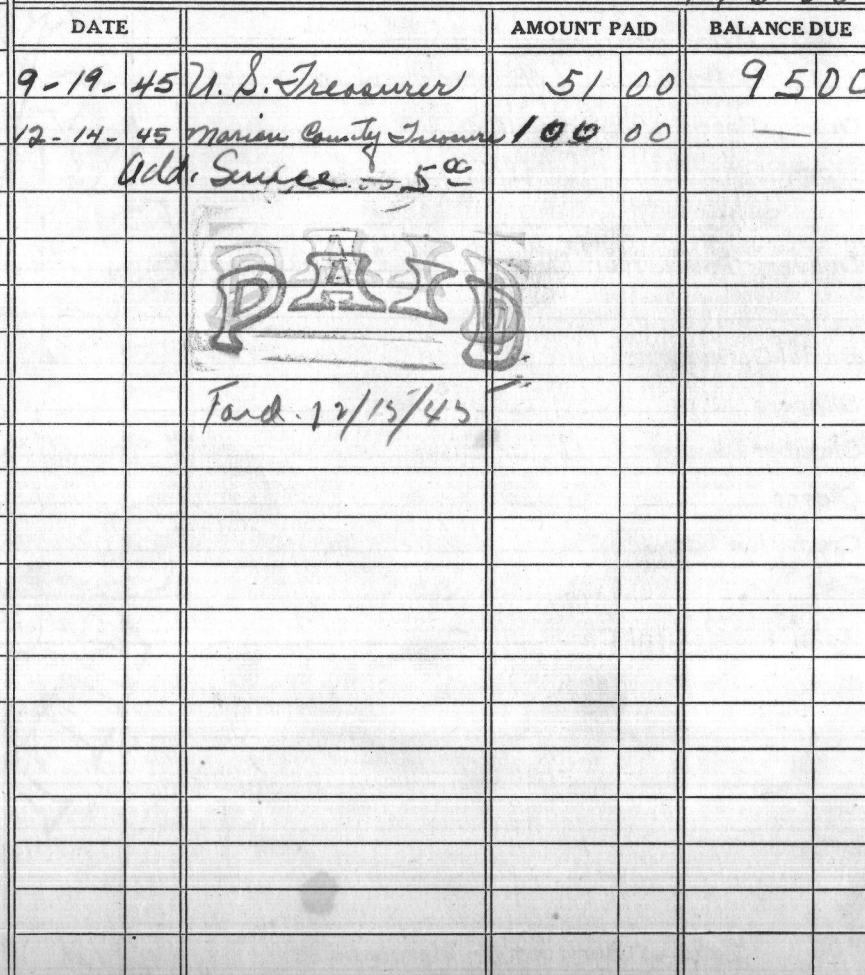 DATE AMOUNT PAID BALANCE DUE
9-19-45 U.S. Treasurer 51 00 95 00
12-14-45 Marion County Treasure 100 00 —
Add. Service 5 00
PAID
12/15/45